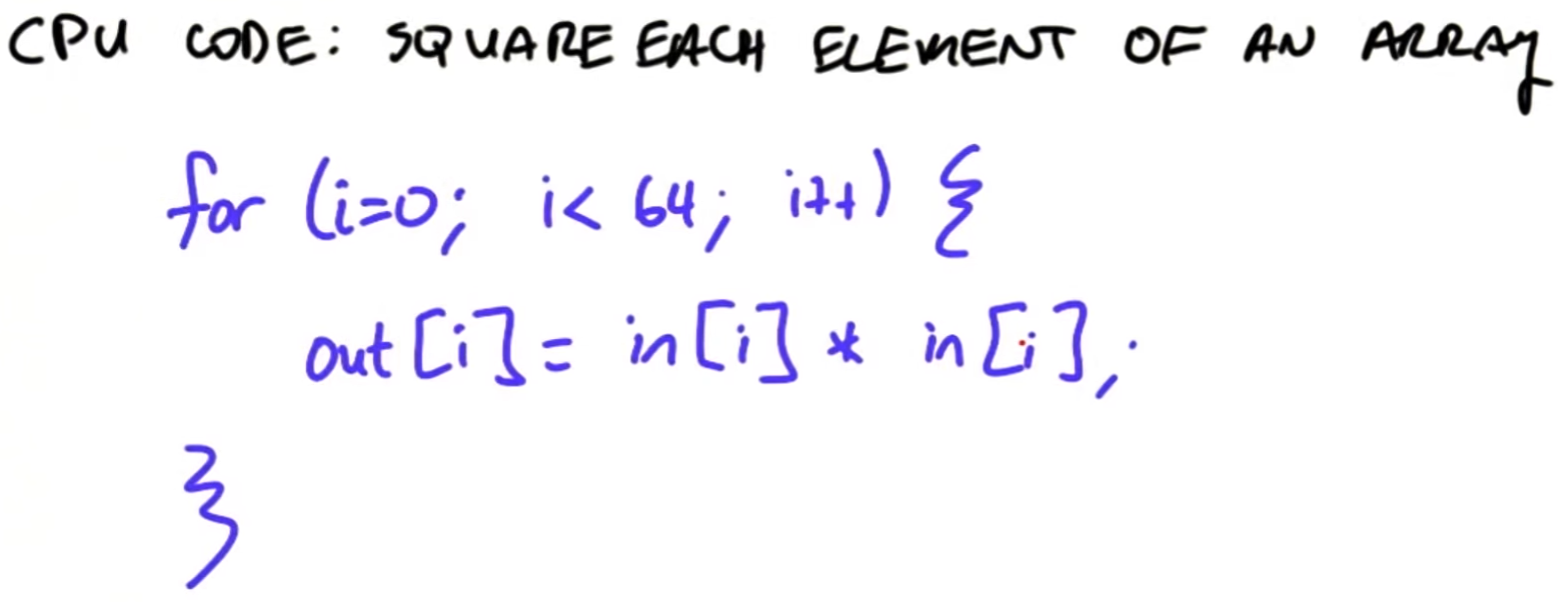 CPU CODE: SQUARE EACH ELEMENT OF AN ARRAY
for (i=0; i< 64; i++) {
out [i] = in [i] * in [i];
}